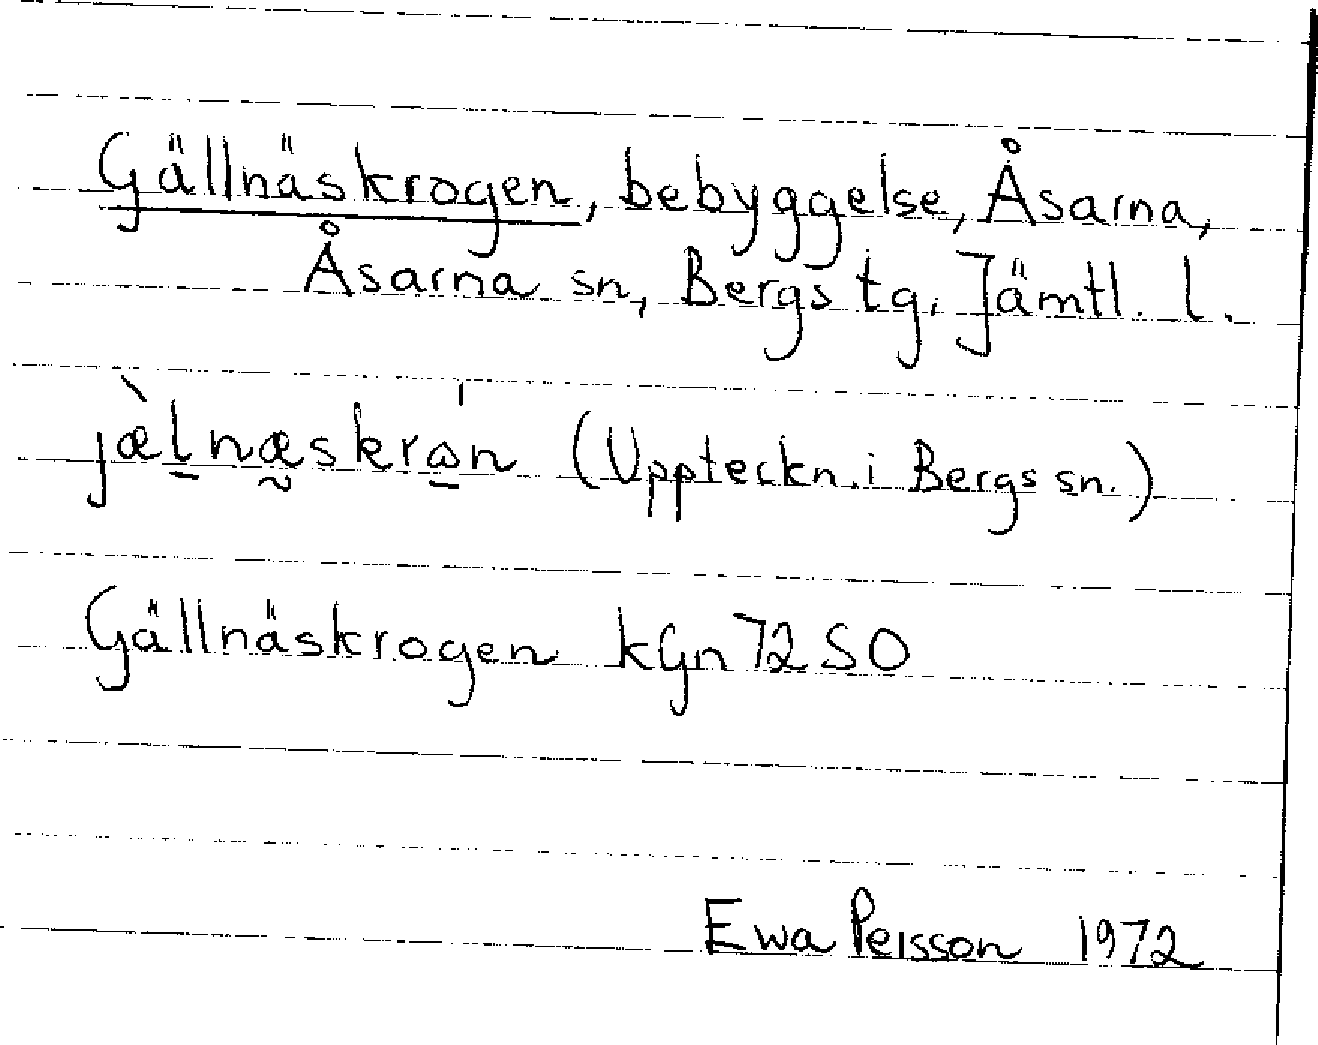 Gällnäskrogen, bebyggelse, Åsarna,
Åsarna sn, Bergs tg. Jämtl. l.
jæ̀l̠næ̰skrώ̠n (Uppteckn. i Bergs sn.)
Gällnäskrogen kGn 72 SO
Ewa Persson 1972